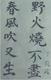 野火燒不盡
春風吹又生